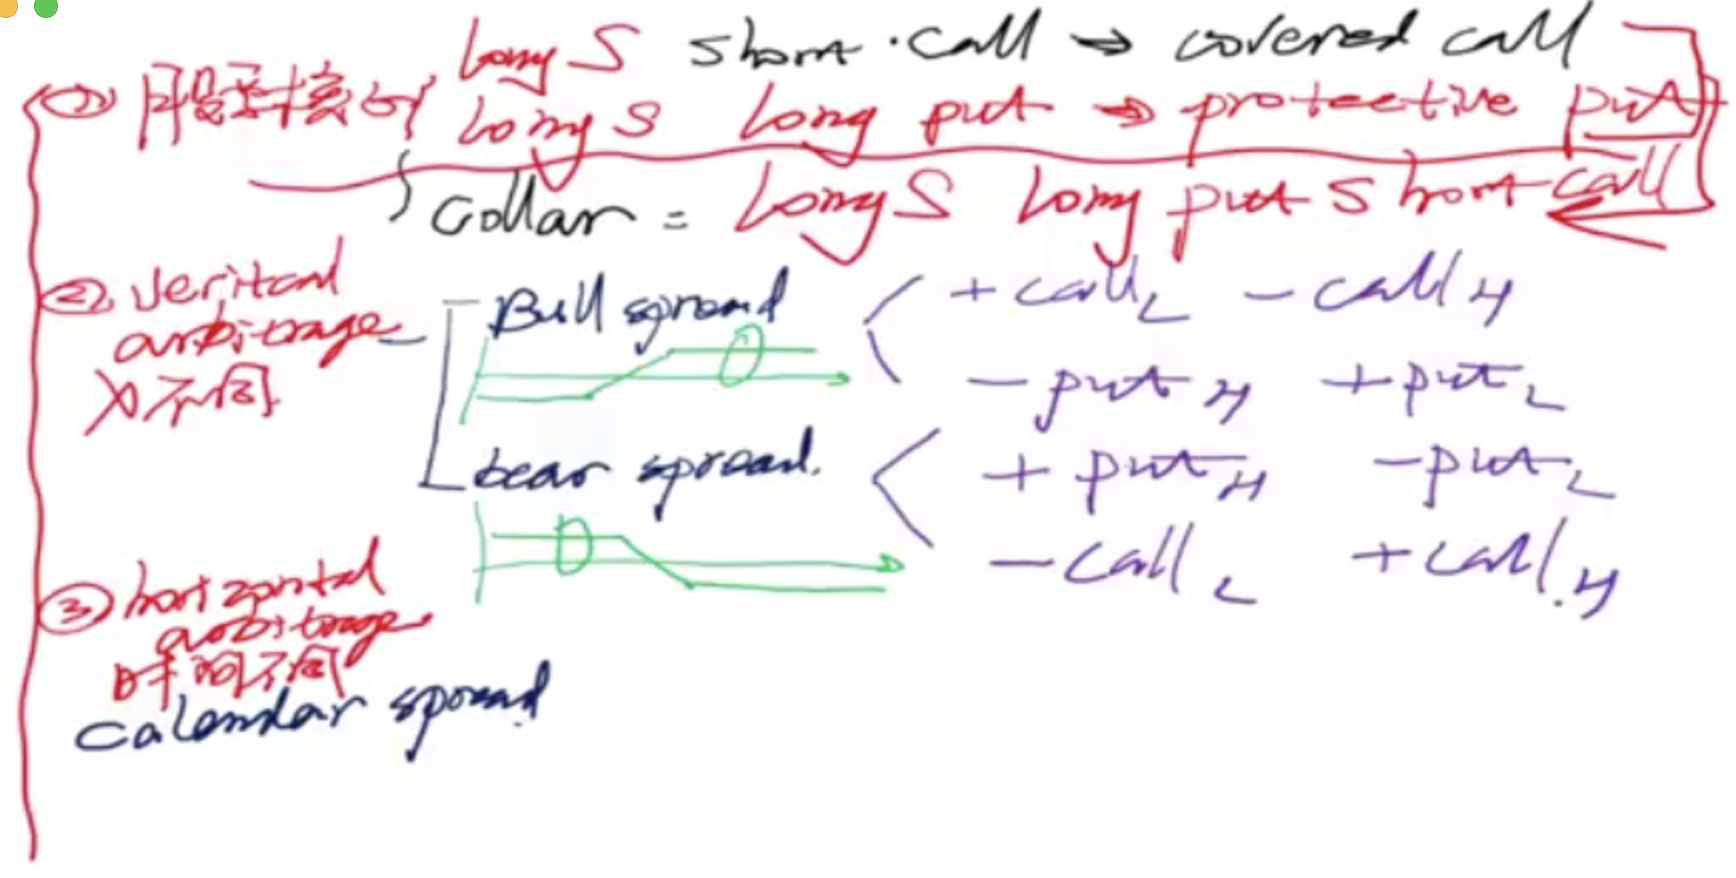 long S short call → covered call
① 用股票对核的 long S long put → protective put
collar = long S long put short call
② veritcal
arbitrage
X不同
Bull spread
+ call L - call H
- put H + put L
bear spread.
+ put H - put L
- call L + call H
③ horizontal
arbitrage
时间不同
calendar spread